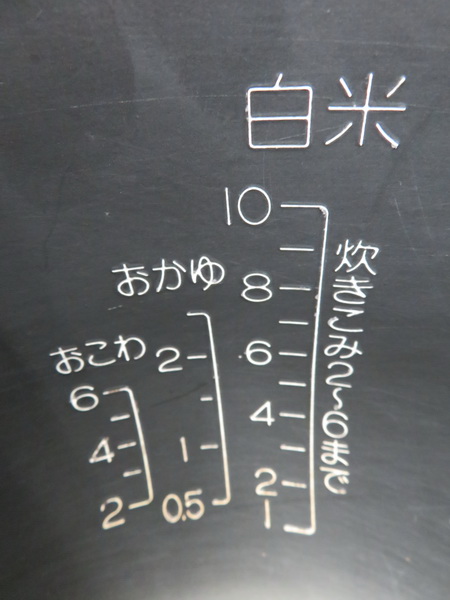 白米
10
8
6
4
2
1
炊きこみ2~6まで
おかゆ
2
1
0.5
おこわ
6
4
2